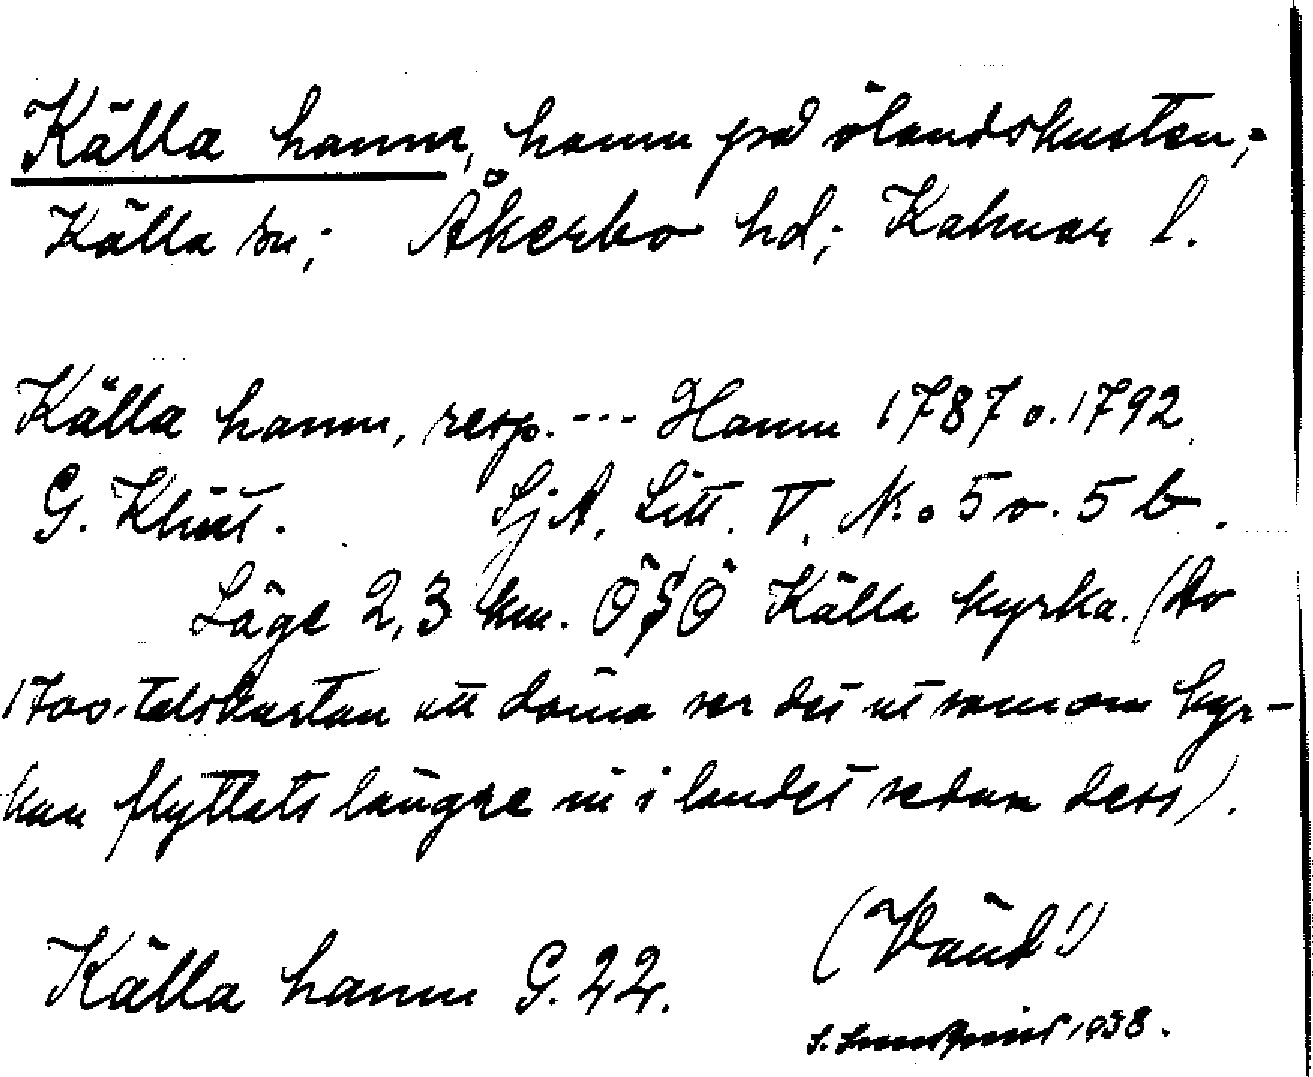 Källa hamn, hamn på ölandskusten;
Källa sn; Åkerbo hd; Kalmar l.
Källa hamn, resp. --- Hamn 1787 o. 1792
G. Klint. SjA, Litt. V, N:o 5 o. 5 b.
Läge 2,3 km. ÖSÖ Källa kyrka. (Av
1700-talskartan att döma ser det ut som om kyr-
kan flyttats längre in i landet sedan dess).
Källa hamn G. 22. (Vänd!)
1938.